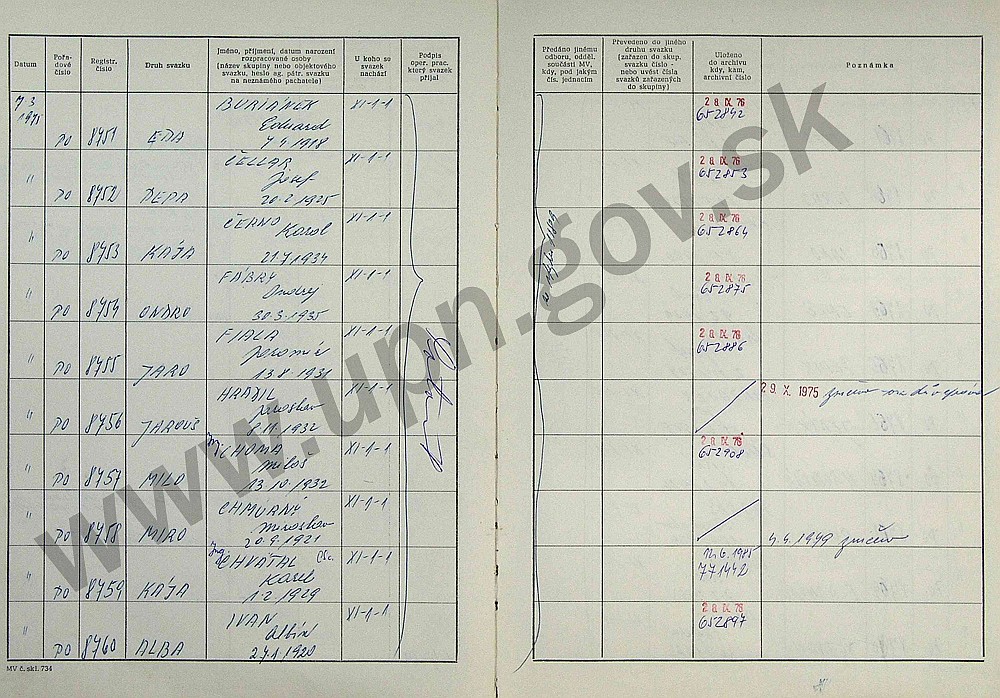 Datum
Pořa-
dové
číslo
Registr.
číslo
Druh svazku
Jméno, příjmení, datum narození
rozpracované osoby
(název skupiny nebo objektového
svazku, heslo ag. pátr. svazku
na neznámého pachatele)
U koho se
svazek
nachází
Podpis
oper. prac.
který svazek
přijal
Předáno jinému
odboru, odděl.
součásti MV,
kdy, pod jakým
čís. jednacím
Převedeno do jiného
druhu svazku
(zařazen do skup.
svazku číslo -
nebo uvést čísla
svazků zařazených
do skupiny)
Uloženo
do archivu
kdy, kam,
archivní číslo
Poznámka
7 3
1975
PO 8751 EDA
BURIANEK
Eduard
XI-1-1
28. IX. 76
652842
" PO 8752 DEPA
ČELLAR
Jozef
20.2.1925
XI-1-1
28. IX. 76
652853
" PO 8753 KAJA
ČERNO
Karol
21.7.1934
XI-1-1
28. IX. 76
652864
" PO 8754 ONDRO
FÁBRY
Ondrej
30.3.1935
XI-1-1
28. IX. 76
652875
" PO 8755 JARO
FIALA
Jaromír
13.8.1931
XI-1-1
28. IX. 76
652886
" PO 8756 JAROUŠ
HRADIL
Jaroslav
8.11.1932
XI-1-1
29. X. 1975 zničen
" PO 8757 MILO
CHOMA
Miloš
13.10.1932
XI-1-1
28. IX. 76
652908
" PO 8758 MIRO
CHMURNÝ
Miroslav
20.9.1921
XI-1-1
zničen
" PO 8759 KAJA
Ing. CHVÁTAL CSc.
Karel
1.2.1929
XI-1-1
12.6.1985
771442
" PO 8760 ALBA
IVAN
Albín
27.1.1920
XI-1-1
28. IX. 76
652897
MV č. skl. 734
www.upn.gov.sk